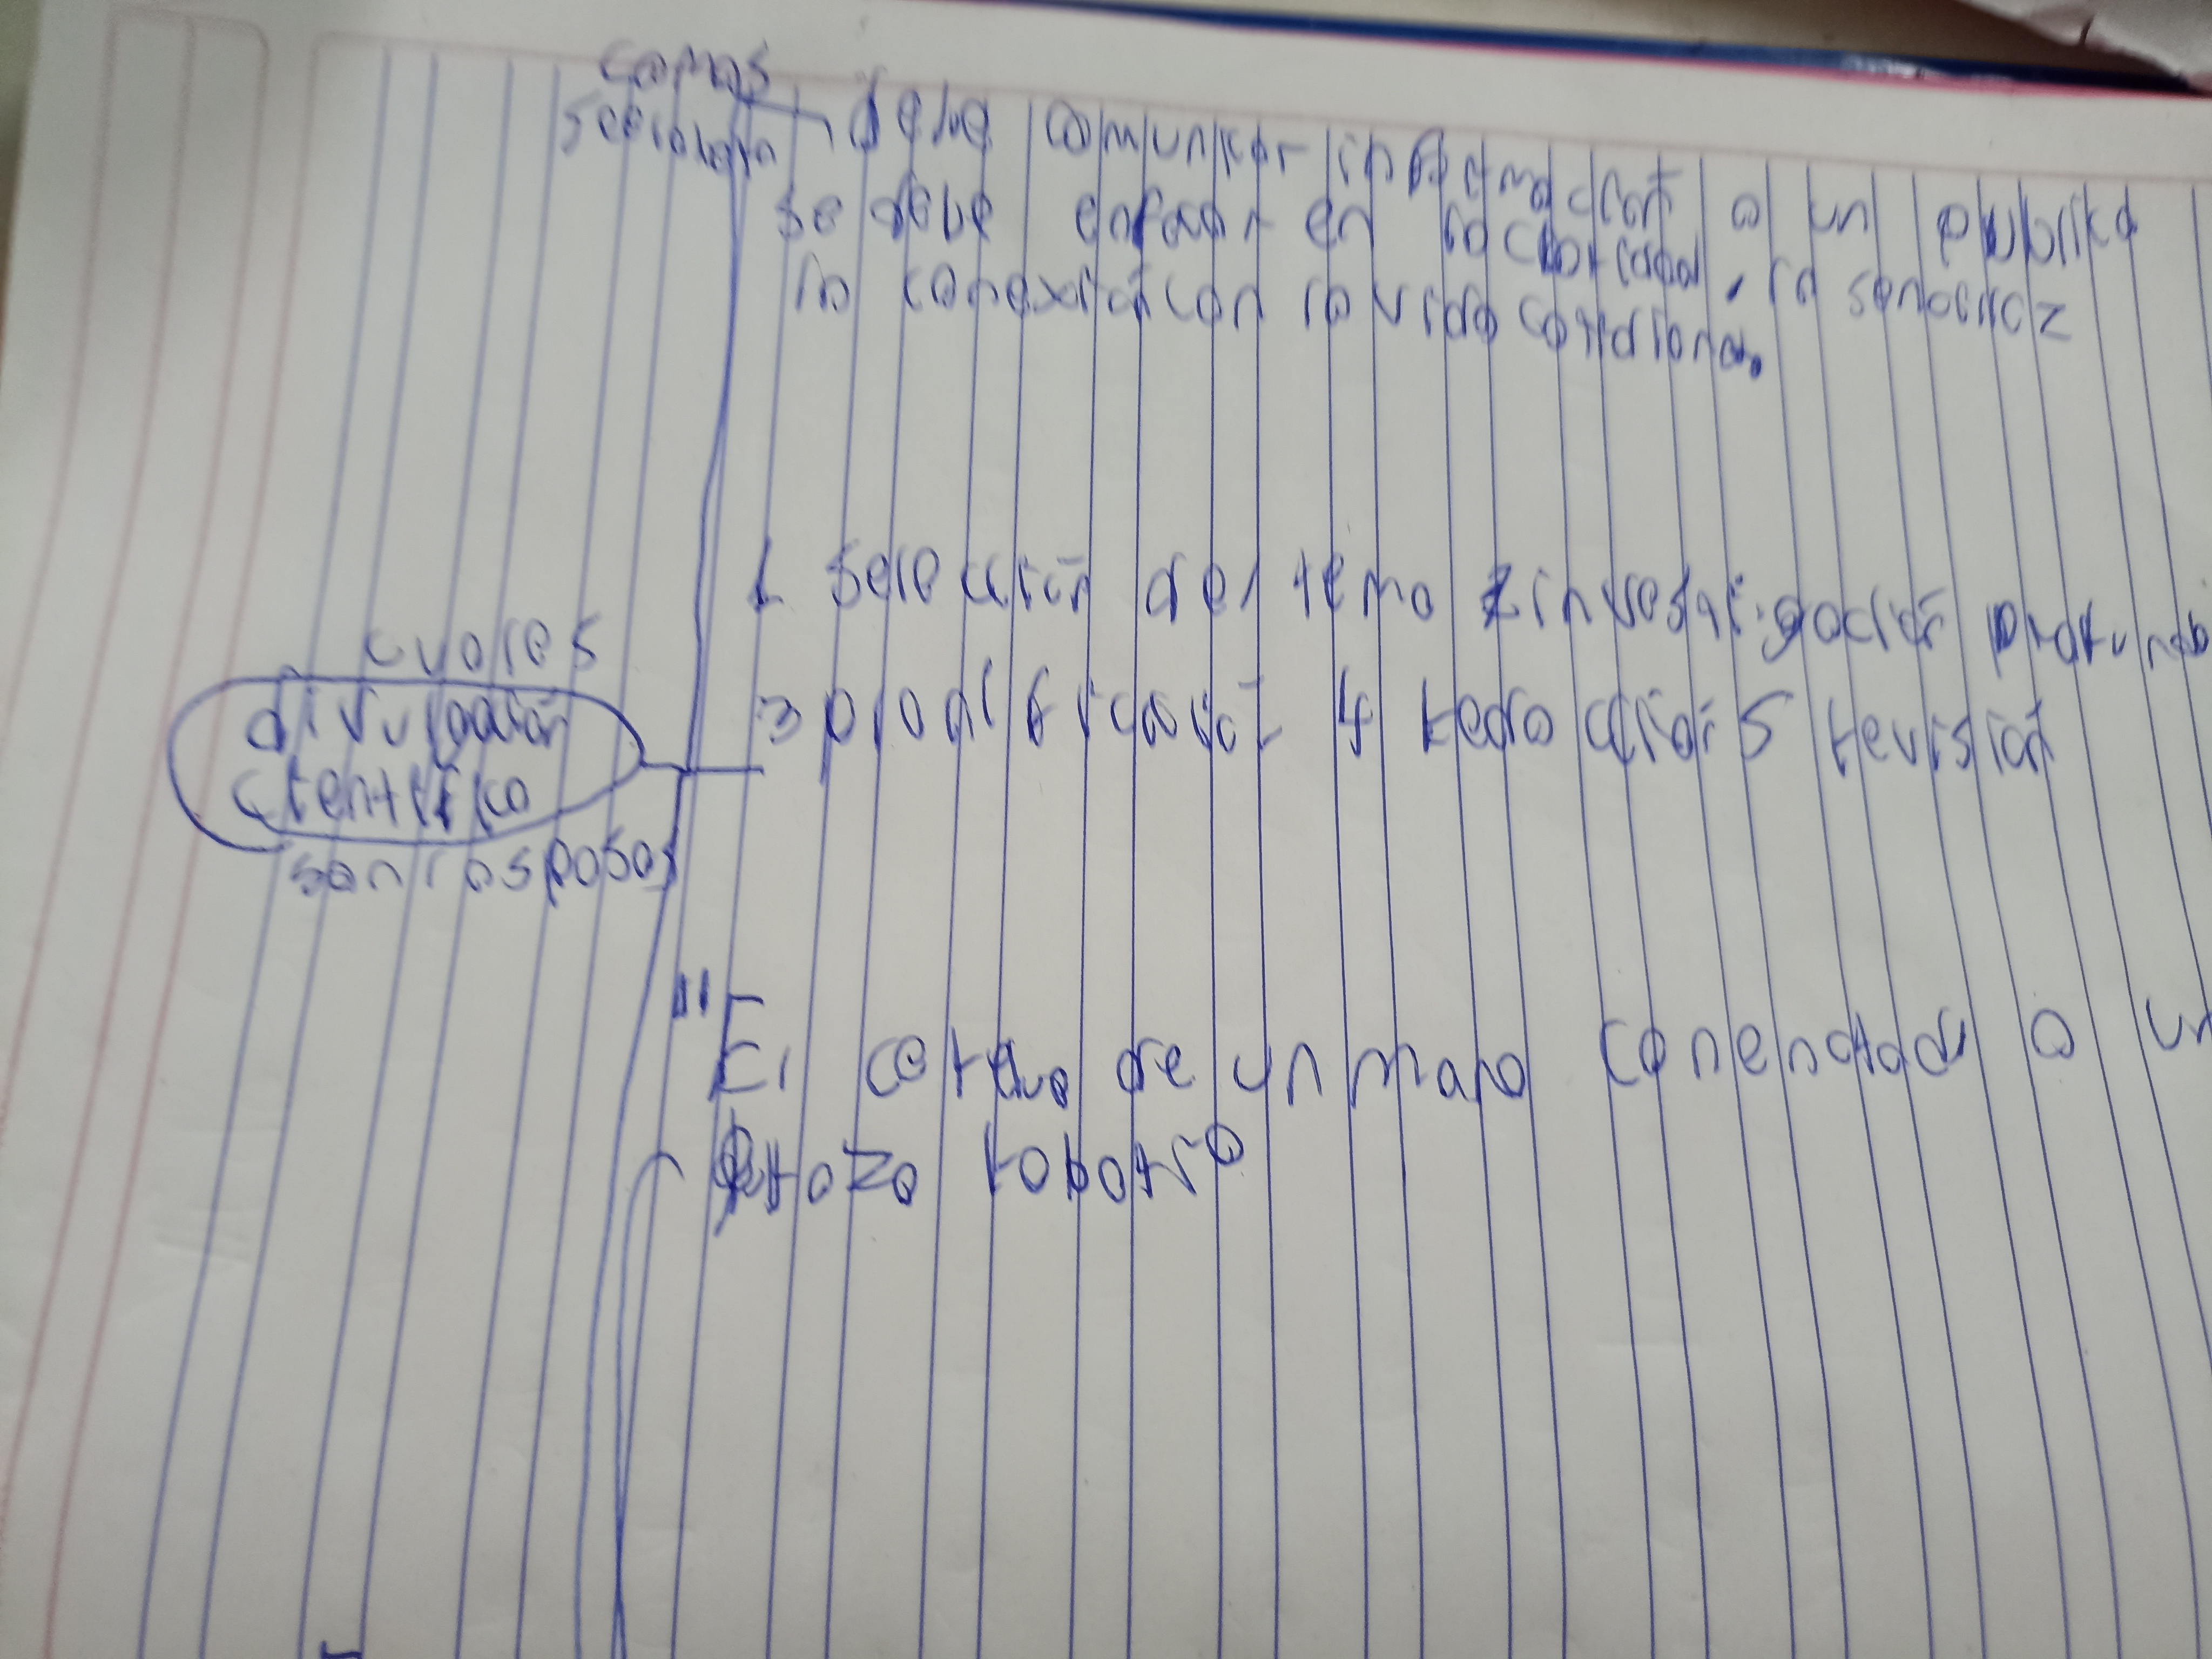 debe comunicar información a un publico
se debe enfocar en la claridad, la sencillez
la conexión con la vida cotidiana.
1 selección del tema 2 investigación profunda
3 planificación 4 redacción 5 revisión
cuales
divulgación
cientifica
son los pasos
"El cerebro de un mano conectada a un
brazo